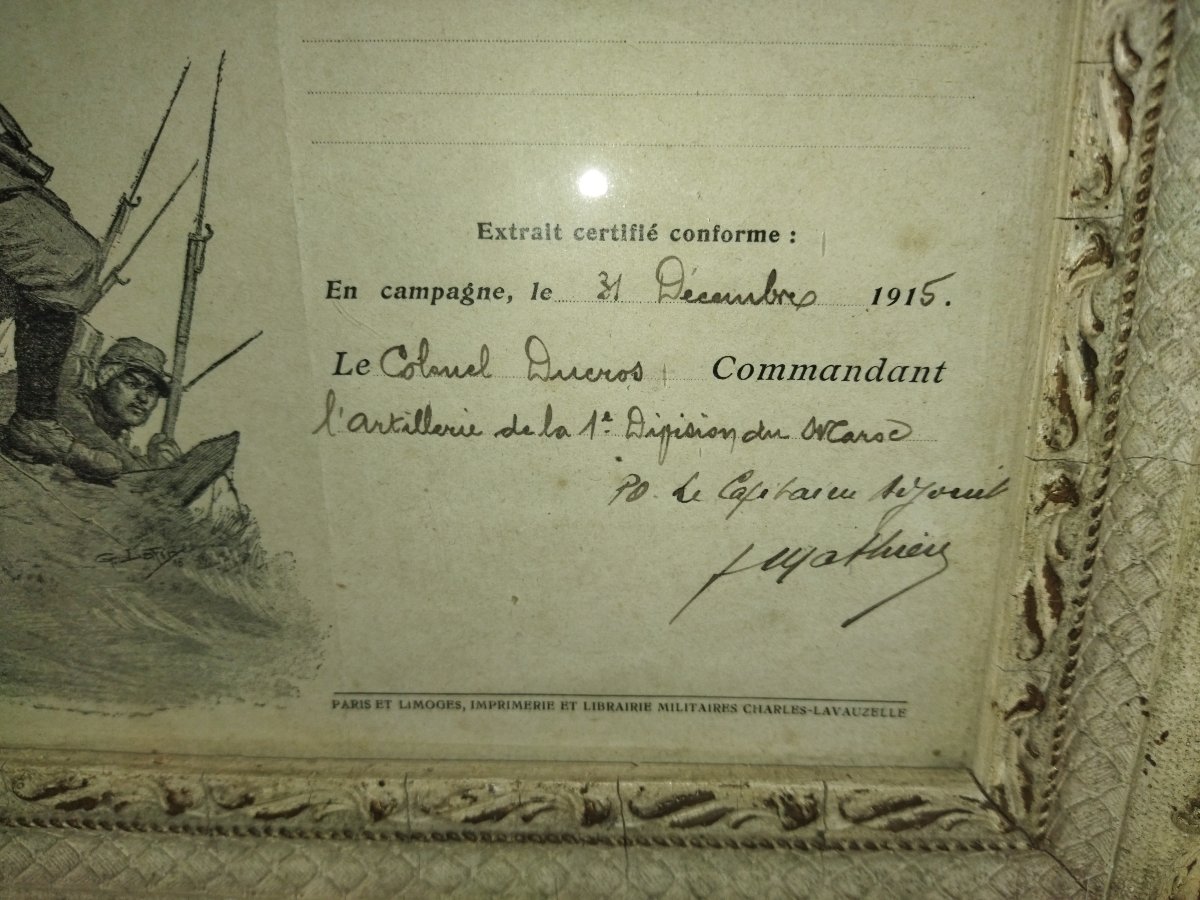 Extrait certifié conforme :
En campagne, le 31 Décembre 1915.
Le Colonel Ducros Commandant
l'artillerie de la 1e Division du Maroc
PO. Le Capitaine adjoint
Mathieu
PARIS ET LIMOGES, IMPRIMERIE ET LIBRAIRIE MILITAIRES CHARLES-LAVAUZELLE